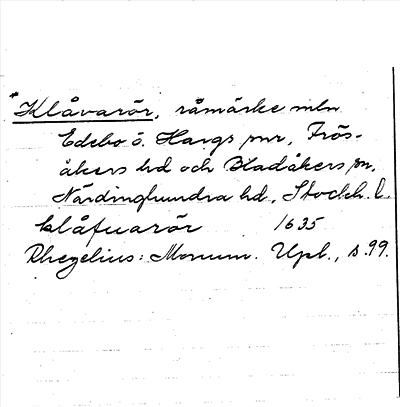 *Klåvarör, råmärke mln
Edebo o. Hargs snr, Frös-
åkers hd och Bladåkers sn,
Närdinghundra hd, Stockh. l.
klåfuarör 1635
Rhezelius: Monum. Upl., s. 99.